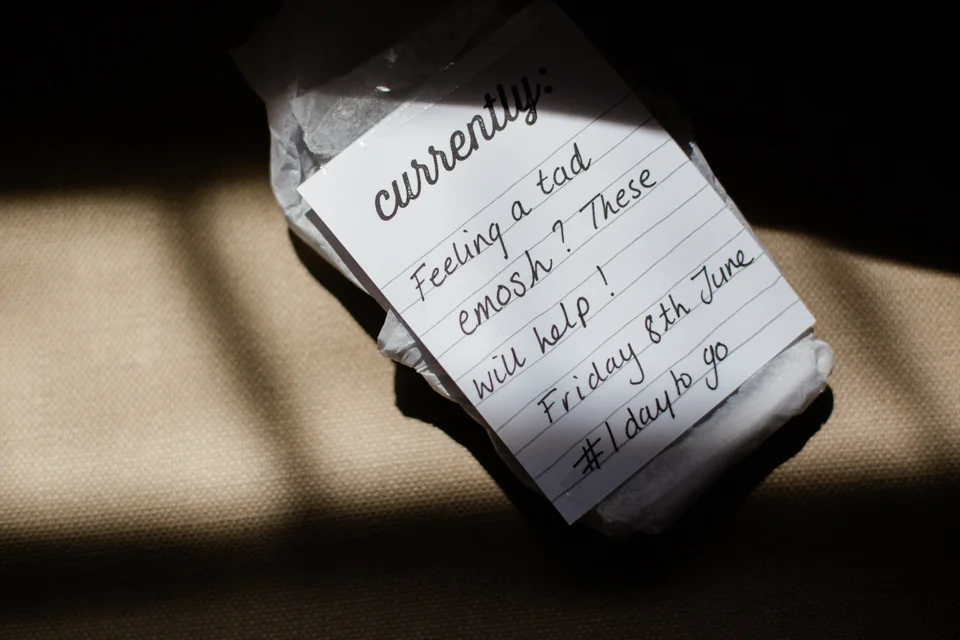 currently:
Feeling a tad
emosh? These
will help!
Friday 8th June
#1 day to go